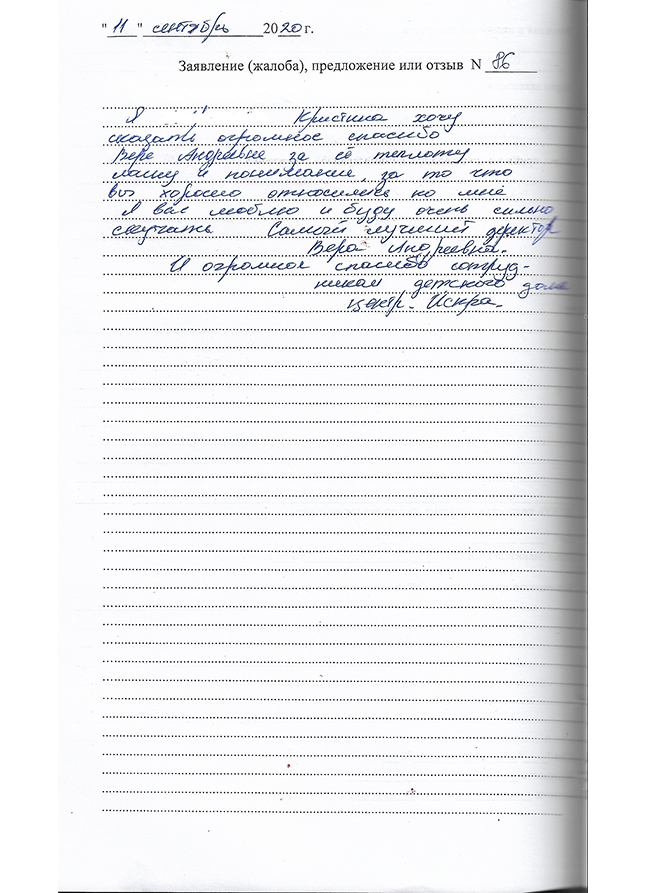 "11" сентябрь 2020 г.
Заявление (жалоба), предложение или отзыв N 86
Я Кристина хочу
сказать огромное спасибо
Вере Андреевне за её теплоту
ласку и понимание, за то что
вы хорошо относились ко мне
Я вас люблю и буду очень сильно
скучать Самый лучший деректор
Вера Андреевна.
И огромное спасибо сотруд-
никам детского дома
центр. Искра.